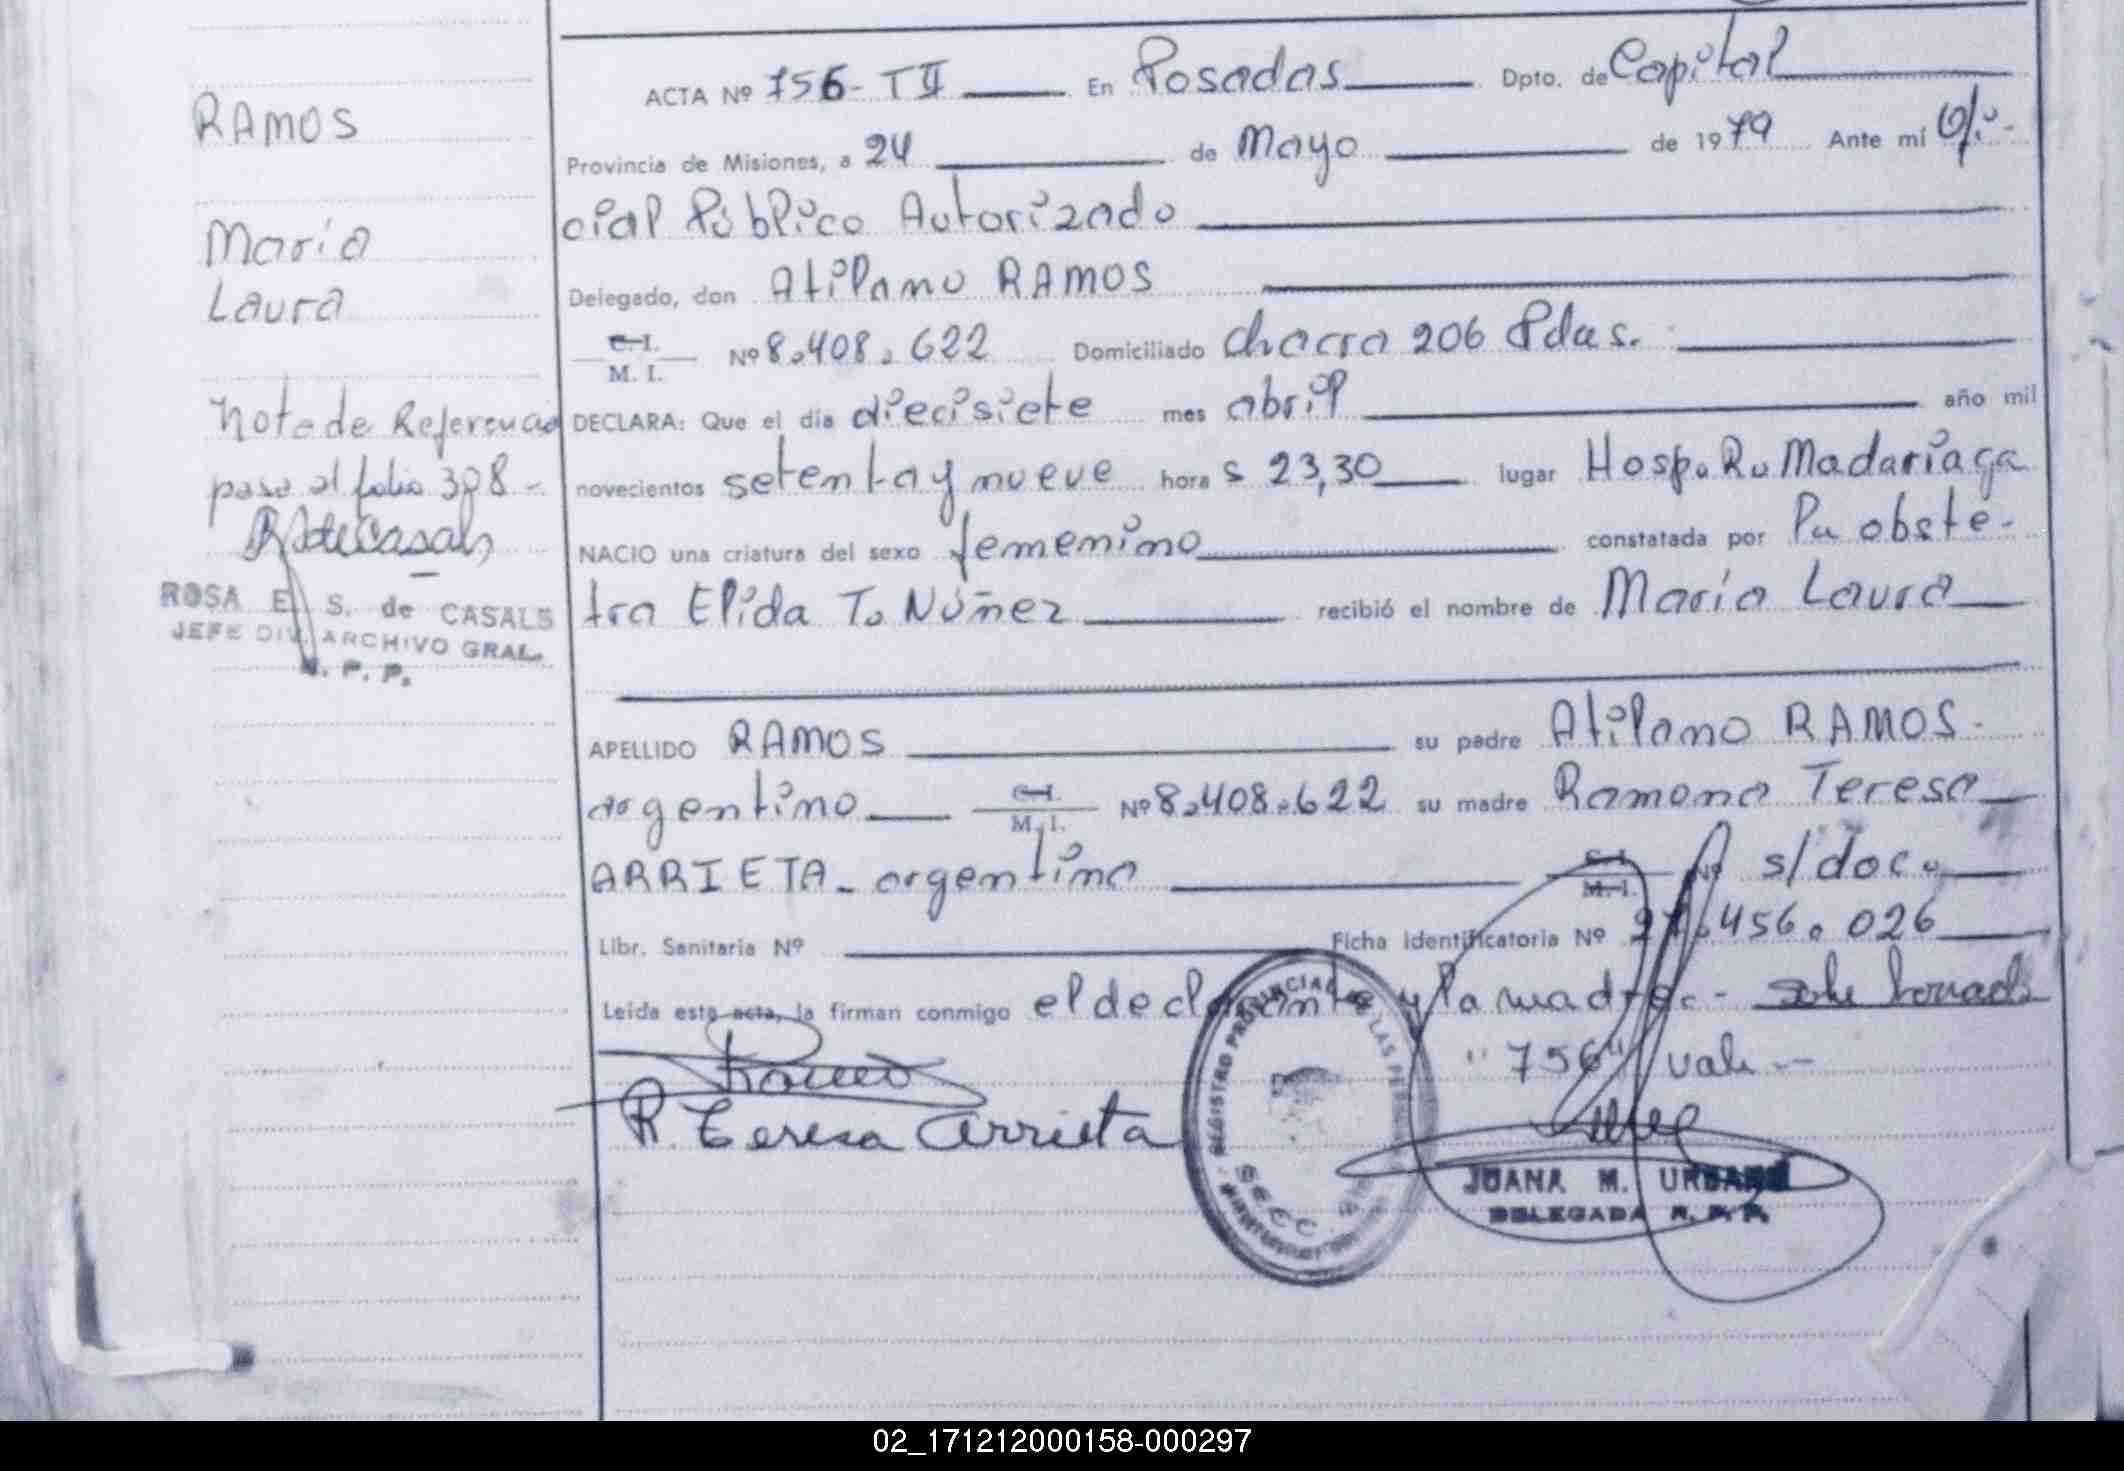 ACTA Nº 756-TII En Posadas Dpto. de Capital
RAMOS
Provincia de Misiones, a 24 de Mayo de 1979 Ante mí Ofi-
cial Público Autorizado
María
Laura
Delegado, don Atilano RAMOS
C.I. M. I. Nº 8.408.622 Domiciliado chacra 206 Pdas.
Nota de Referencia
DECLARA: Que el día diecisiete mes abril año mil
pasa al folio 398-
novecientos setenta y nueve hora s 23,30 lugar Hosp. R. Madariaga
NACIO una criatura del sexo femenino constatada por Pu obste-
ROSA E. S. de CASALS
JEFE DIV. ARCHIVO GRAL.
R. P. P.
tra Elida T. Núñez recibió el nombre de María Laura
APELLIDO RAMOS su padre Atilano RAMOS-
argentino C.I. M. I. Nº 8.408.622 su madre Ramona Teresa
ARRIETA- argentina C.I. M.I. Nº s/doc.
Libr. Sanitaria Nº Ficha Identificatoria Nº 27.456.026
Leída esta acta, la firman conmigo el declarante y la madre.- sobre borrado
"756" vale-
R. Teresa Arrieta
REGISTRO PROVINCIAL DE LAS PERSONAS
JUANA M. URBANO
DELEGADA R. P. P.
02_171212000158-000297